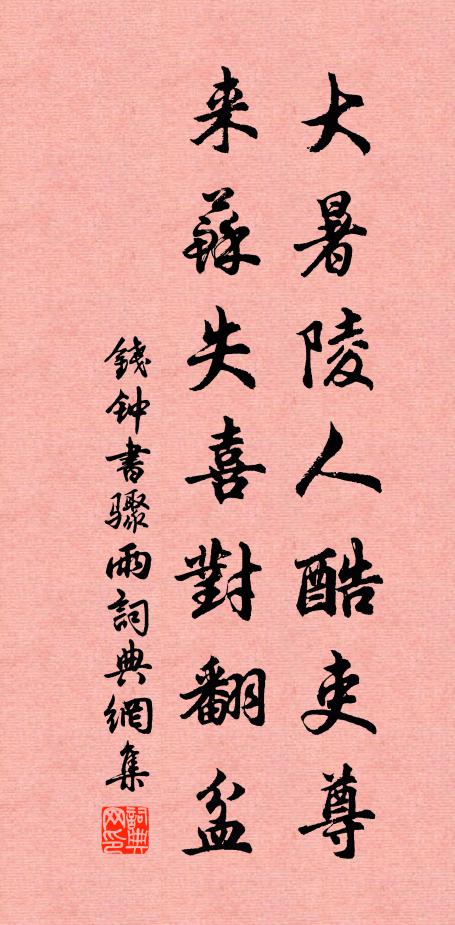 大暑陵人酷吏尊
来蘇失喜對翻盆
錢钟書驟雨詞典網集
詞典
网印